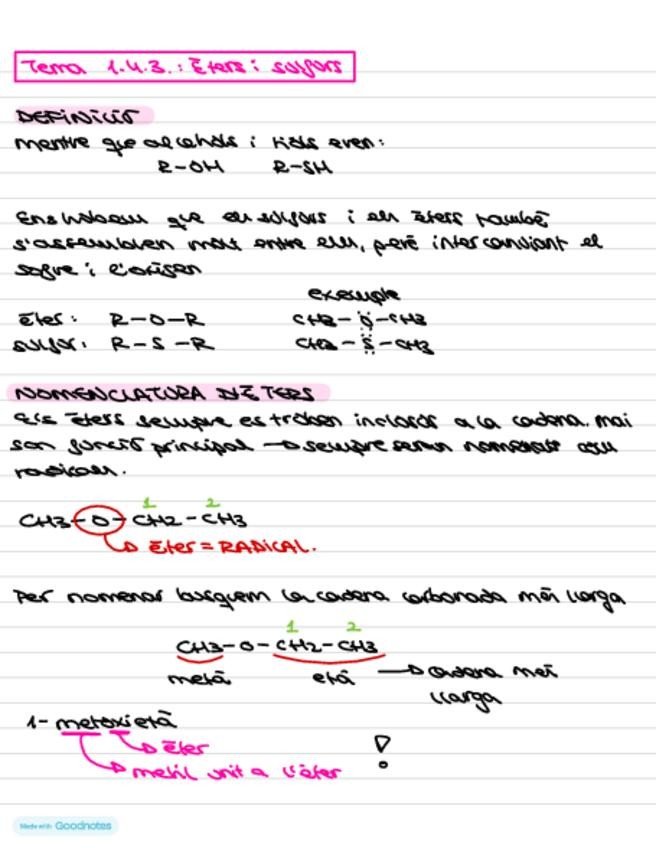 Tema 1.4.3.: Èters i sulfurs
DEFINICIÓ
Mentre que alcohols i tiols eren:
R-OH R-SH
Ens trobem que els sulfurs i els èters també
s'assemblen molt entre ells, però intercanviant el
sofre i l'oxigen
exemple
èter: R-O-R CH3-O-CH3
sulfur: R-S-R CH3-S-CH3
NOMENCLATURA D'ÈTERS
Els èters sempre es troben inclosos a la cadena. Mai
son funció principal → sempre seran nomenats com
radicals.
1 2
CH3-O-CH2-CH3
→ èter = RADICAL.
Per nomenar busquem la cadena carbonada més llarga
1 2
CH3-O-CH2-CH3
metà età → cadena més
llarga
1-metoxietà
→ èter
→ metil unit a l'èter !
Made with Goodnotes